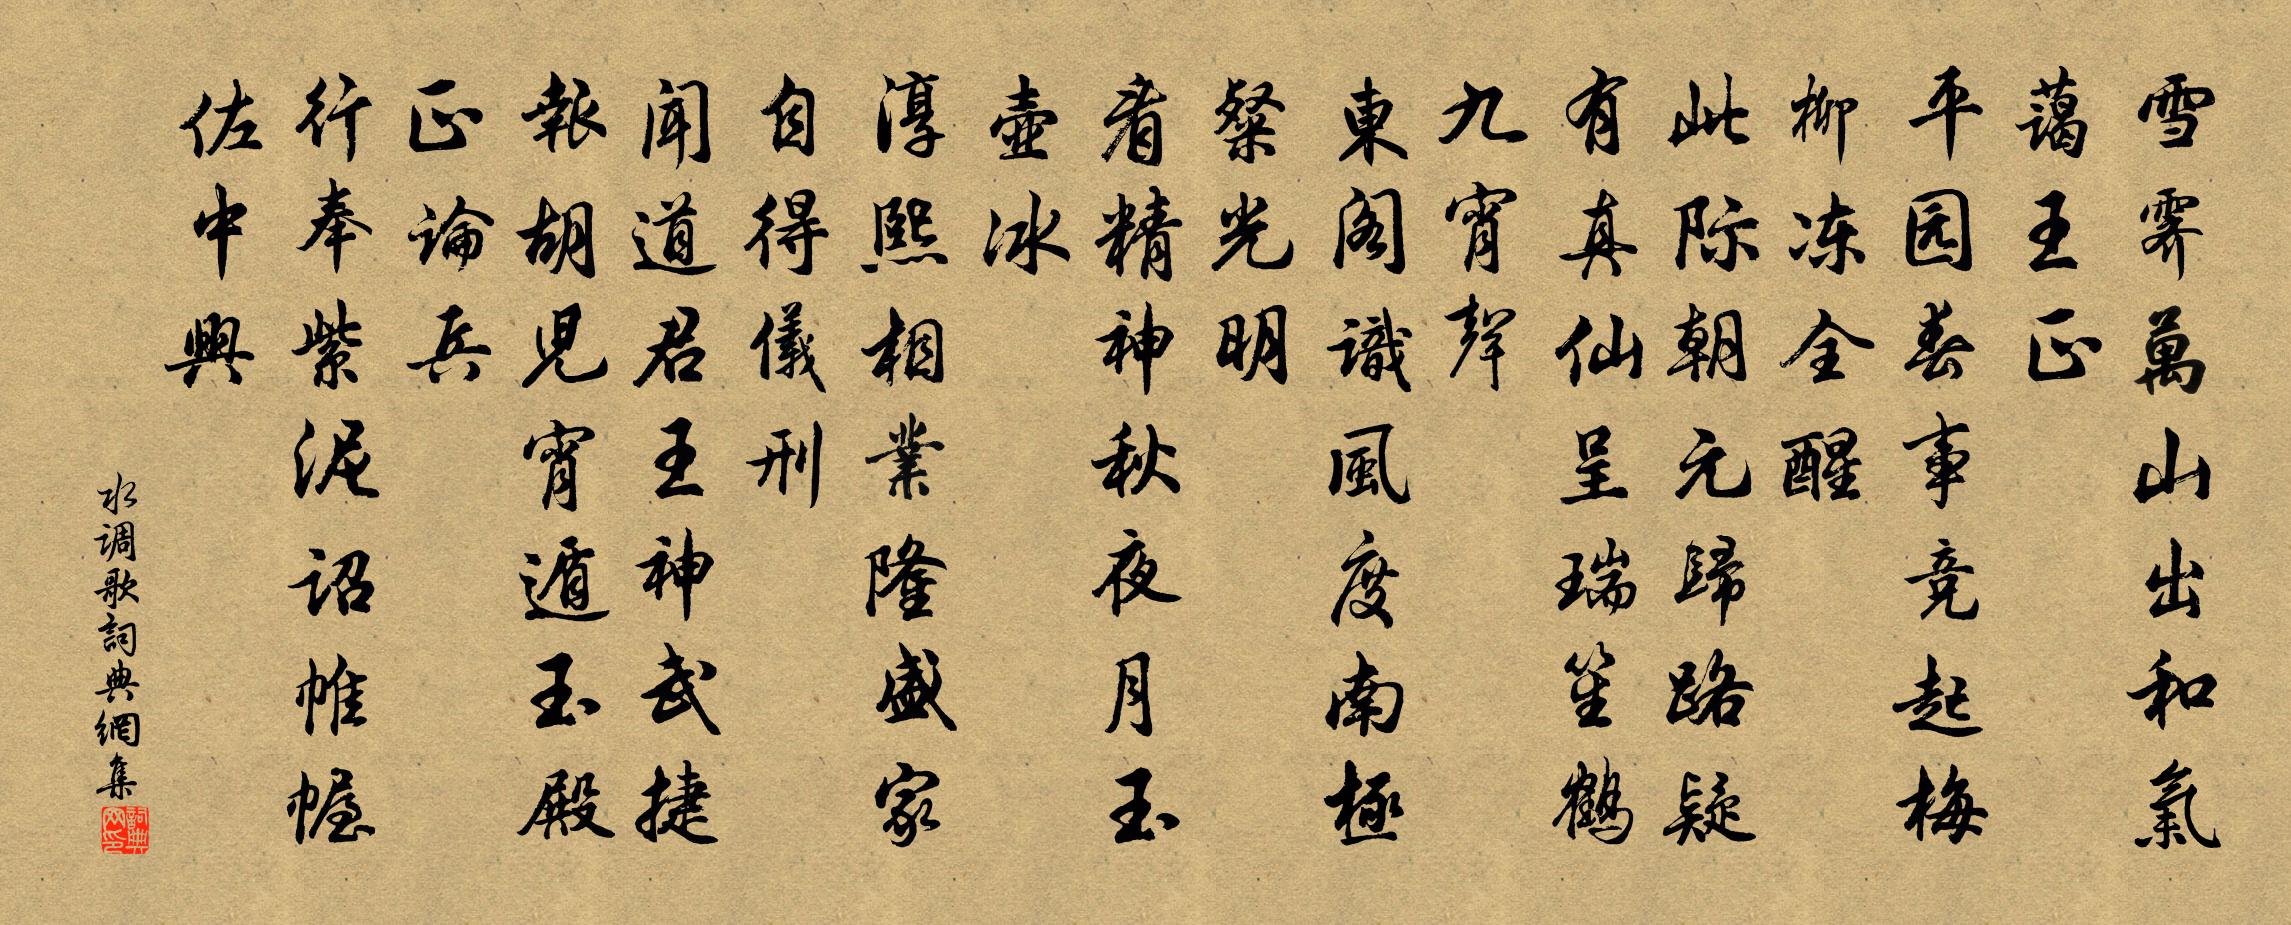 雪霽萬山出和氣
藹王正
平园春事竞起梅
柳冻全醒
此际朝元歸路疑
有真仙呈瑞笙鶴
九宵聲
東阁識風度南極
粲光明
看精神秋夜月玉
壺冰
淳熙相業隆盛家
自得儀刑
闻道君王神武捷
報胡児宵遁玉殿
正論兵
行奉紫泥诏帷幄
佐中興
水调歌詞典網集
詞典网印